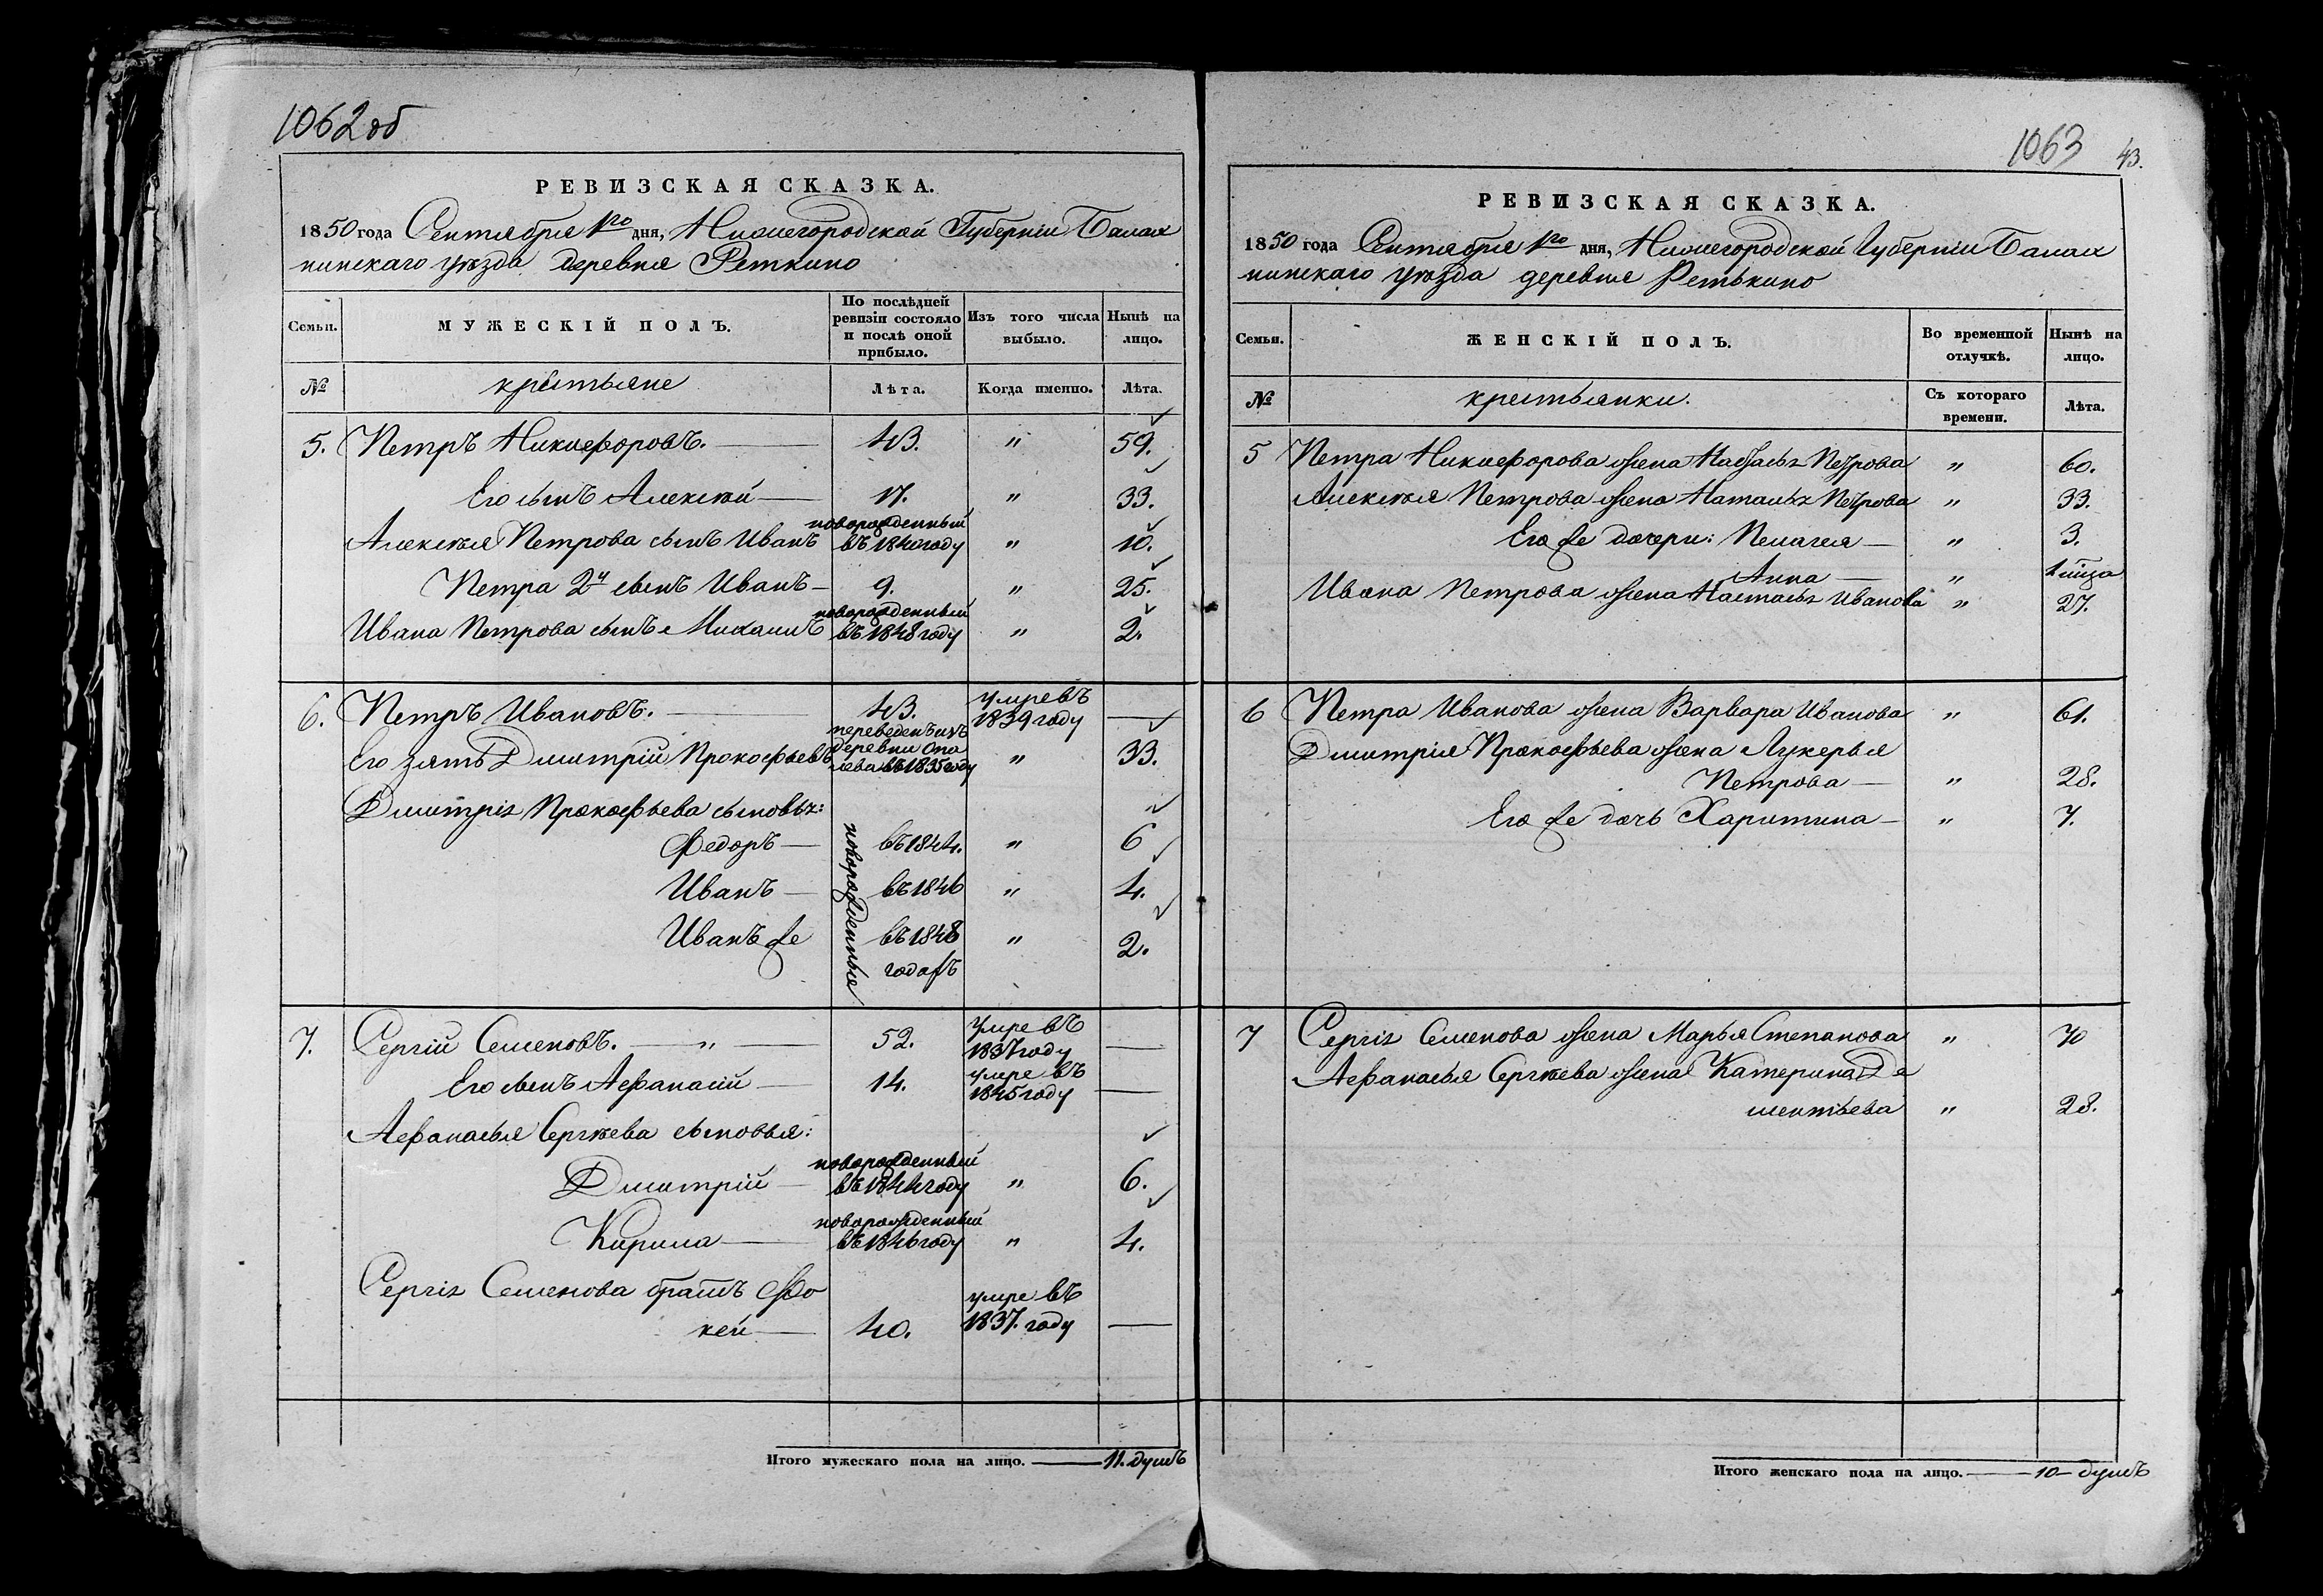 1062 об
РЕВИЗСКАЯ СКАЗКА.
1850 года Сентября 1го дня, Нижегородской Губерніи Балах
нинскаго уѣзда деревня Реткино
Семьи. МУЖЕСКІЙ ПОЛЪ. По послѣдней ревизіи состояло и послѣ оной прибыло. Изъ того числа выбыло. Нынѣ на лицо.
№ крестьяне Лѣта. Когда именно. Лѣта.
5. Петръ Никифоровъ. — 43. " 59.
Его сынъ Алексѣй — 17. " 33.
Алексѣя Петрова сынъ Иванъ новорожденный въ 1840 году " 10.
Петра 2й сынъ Иванъ — 9. " 25.
Ивана Петрова сынъ Михаилъ новорожденный въ 1848 году " 2.
6. Петръ Ивановъ. — 43. умре въ 1839 году —
Его зять Дмитрій Прокофьевъ переведенъ изъ деревни въ 1835 году " 33.
Дмитрія Прокофьева сыновья:
новорожденные
Федоръ — въ 1844. " 6
Иванъ — въ 1846 " 4.
Иванъ же въ 1848 " 2.
годахъ
7. Сергій Семеновъ. — " — 52. умре въ 1837 году —
Его сынъ Афанасій — 14. умре въ 1845 году —
Афанасья Сергѣева сыновья:
Дмитрій — новорожденный въ 1844 году " 6.
Кирила — новорожденный въ 1846 году " 4.
Сергія Семенова братъ Фо
кей — 40. умре въ 1837. году —
Итого мужескаго пола на лицо. — 11. душъ
1063 43.
РЕВИЗСКАЯ СКАЗКА.
1850 года Сентября 1го дня, Нижегородской Губерніи Балах
нинскаго уѣзда деревня Ретькино
Семьи. ЖЕНСКІЙ ПОЛЪ. Во временной отлучкѣ. Нынѣ на лицо.
№ крестьянки. Съ котораго времени. Лѣта.
5 Петра Никифорова жена Настасья Петрова " 60.
Алексѣя Петрова жена Наталья Петрова " 33.
Его же дочери: Пелагея — " 3.
Анна — "
Ивана Петрова жена Настасья Иванова " 27.
6 Петра Иванова жена Варвара Иванова " 61.
Дмитрія Прокофьева жена Лукерья
Петрова — " 28.
Его же дочь Харитина — " 7.
7 Сергія Семенова жена Марья Степанова " 70
Афанасья Сергѣева жена Катерина Де
ментьева " 28.
Итого женскаго пола на лицо. — 10 — душъ